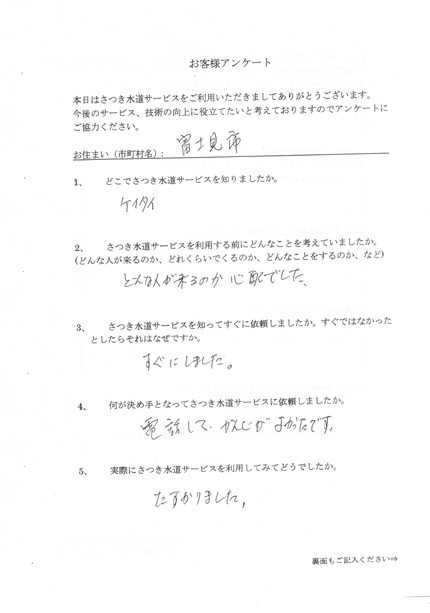 お客様アンケート
本日はさつき水道サービスをご利用いただきましてありがとうございます。
今後のサービス、技術の向上に役立てたいと考えておりますのでアンケートに
ご協力ください。
お住まい（市町村名）： 富士見市
1、 どこでさつき水道サービスを知りましたか。
ケイタイ
2、 さつき水道サービスを利用する前にどんなことを考えていましたか。
(どんな人が来るのか、どれくらいでくるのか、どんなことをするのか、など)
どんな人が来るのか 心配でした、
3、 さつき水道サービスを知ってすぐに依頼しましたか。すぐではなかった
としたらそれはなぜですか。
すぐにしました。
4、 何が決め手となってさつき水道サービスに依頼しましたか。
電話して、かんじがよかったです。
5、 実際にさつき水道サービスを利用してみてどうでしたか。
たすかりました。
裏面もご記入ください⇒